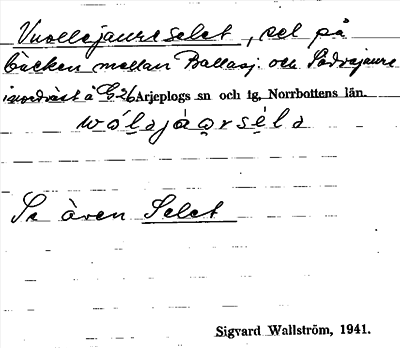 Vuollejaureselet, sel på
bäcken mellan Ballasj. och Sädvajaure
i nordväst å G 26 Arjeplogs sn och tg, Norrbottens län.
wólajáọrsélə
Se även Selet
Sigvard Wallström, 1941.